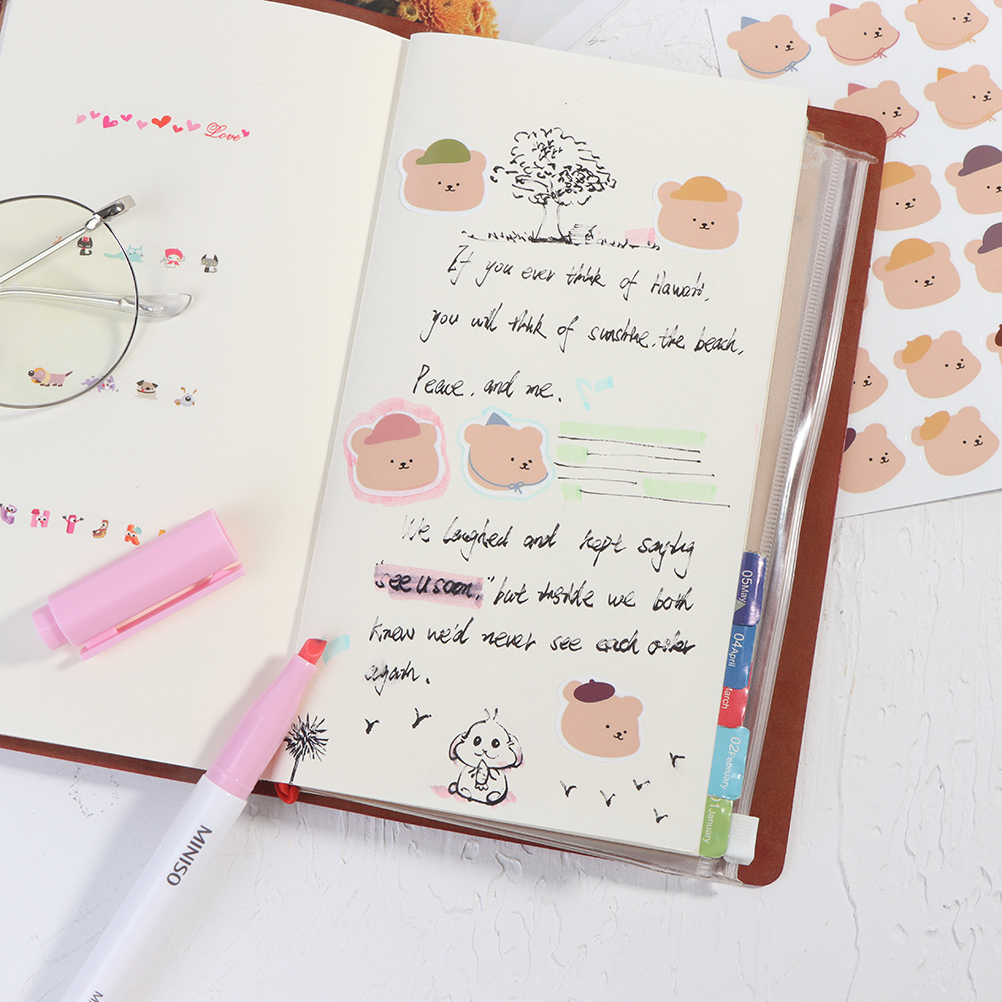 Love
If you ever think of Hawaii,
you will think of sunshine, the beach,
Peace, and me.
We laughed and kept saying
"see u soon," but inside we both
knew we'd never see each other
again.
05May
04April
March
02February
01January
MINISO